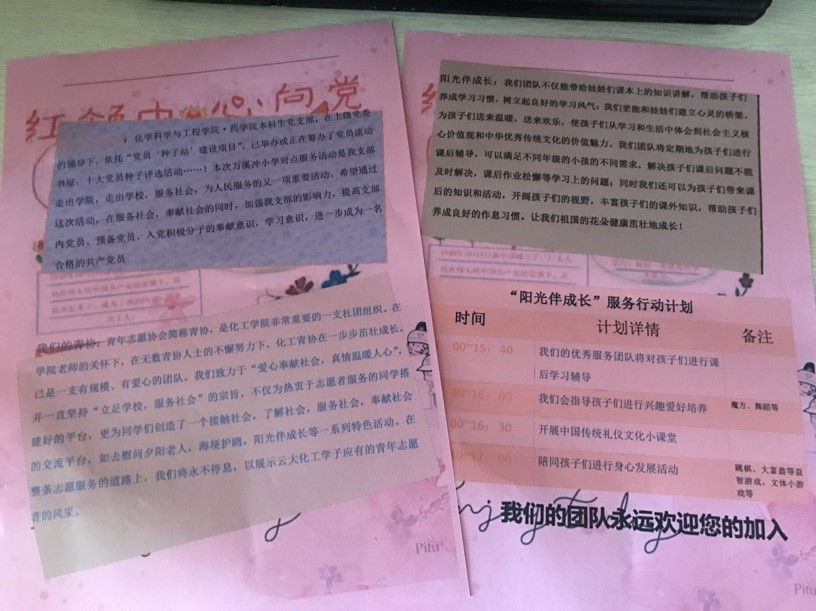 红领巾心向党
：化学科学与工程学院·药学院本科生党支部，在上级党委
的领导下，依托“党员‘种子站’建设项目”，已举办或正在筹办了党员流动
书屋、十大党员种子评选活动……！本次万溪冲小学对点服务活动是我支部
走出学院，走出学校，服务社会，为人民服务的又一项重要活动，希望通过
这次活动，在服务社会，奉献社会的同时，加强我支部的影响力，提高支部
内党员、预备党员、入党积极分子的奉献意识，学习意识，进一步成为一名
合格的共产党员
我们的青协：青年志愿协会简称青协，是化工学院非常重要的一支社团组织。在
学院老师的关怀下，在无数青协人士的不懈努力下，化工青协在一步步茁壮成长，
已是一支有规模、有爱心的团队。我们致力于“爱心奉献社会，真情温暖人心”，
并一直坚持“立足学校，服务社会”的宗旨，不仅为热衷于志愿者服务的同学搭
建好的平台，更为同学们创造了一个接触社会，了解社会，服务社会，奉献社会
的交流平台，如去慰问夕阳老人，海埂护鸥，阳光伴成长等一系列特色活动。在
整条志愿服务的道路上，我们将永不停息，以展示云大化工学子应有的青年志愿
者的风采。
Pitu
阳光伴成长：我们团队不仅能带给娃娃们课本上的知识讲解，帮助孩子们
养成学习习惯，树立起良好的学习风气；我们更能和娃娃们建立心灵的桥梁，
为孩子们送来温暖，送来欢乐，使孩子们从学习和生活中体会到社会主义核
心价值观和中华优秀传统文化的价值魅力。我们团队将定期地为孩子们进行
课后辅导，可以满足不同年级的小孩的不同需求，解决孩子们课后问题不能
及时解决，课后作业松懈等学习上的问题；同时我们还可以为孩子们带来课
后的知识和活动，开阔孩子们的视野，丰富孩子们的课外知识，帮助孩子们
养成良好的作息习惯，让我们祖国的花朵健康茁壮地成长！
“阳光伴成长”服务行动计划
时间 计划详情 备注
00~15：40 我们的优秀服务团队将对孩子们进行课
后学习辅导
40~16：00 我们会指导孩子们进行兴趣爱好培养 魔方、舞蹈等
00~16：30 开展中国传统礼仪文化小课堂
30~17：00 陪同孩子们进行身心发展活动 跳棋、大富翁等益
智游戏，文体小游
戏等
我们的团队永远欢迎您的加入
Pitu